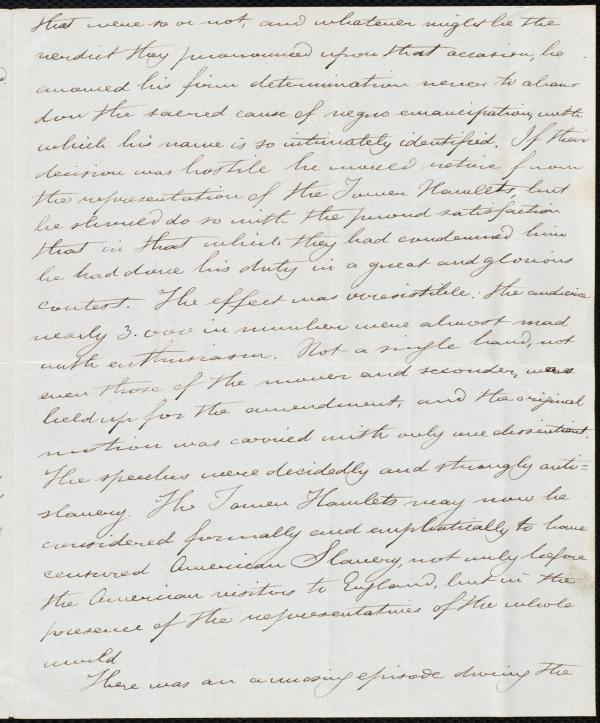 that were so or not, and whatever might be the
verdict they pronounced upon that occasion, he
avowed his firm determination never to aban
don the sacred cause of negro emancipation, with
which his name is so intimately identified. If their
decision was hostile he would retire from
the representation of the Tower Hamlets, but
he should do so with the proud satisfaction
that in that which they had condemned him
he had done his duty in a great and glorious
contest. The effect was irresistible: the audience
nearly 3.000 in number were almost mad
with enthusiasm. Not a single hand, not
even those of the mover and seconder, was
held up for the amendment, and the original
motion was carried with only one dissentient.
The speeches were decidedly and strongly anti=
slavery. The Tower Hamlets may now be
considered formally and emphatically to have
censured American Slavery, not only before
the American visitors to England, but in the
presence of the representatives of the whole
world
There was an amusing episode during the